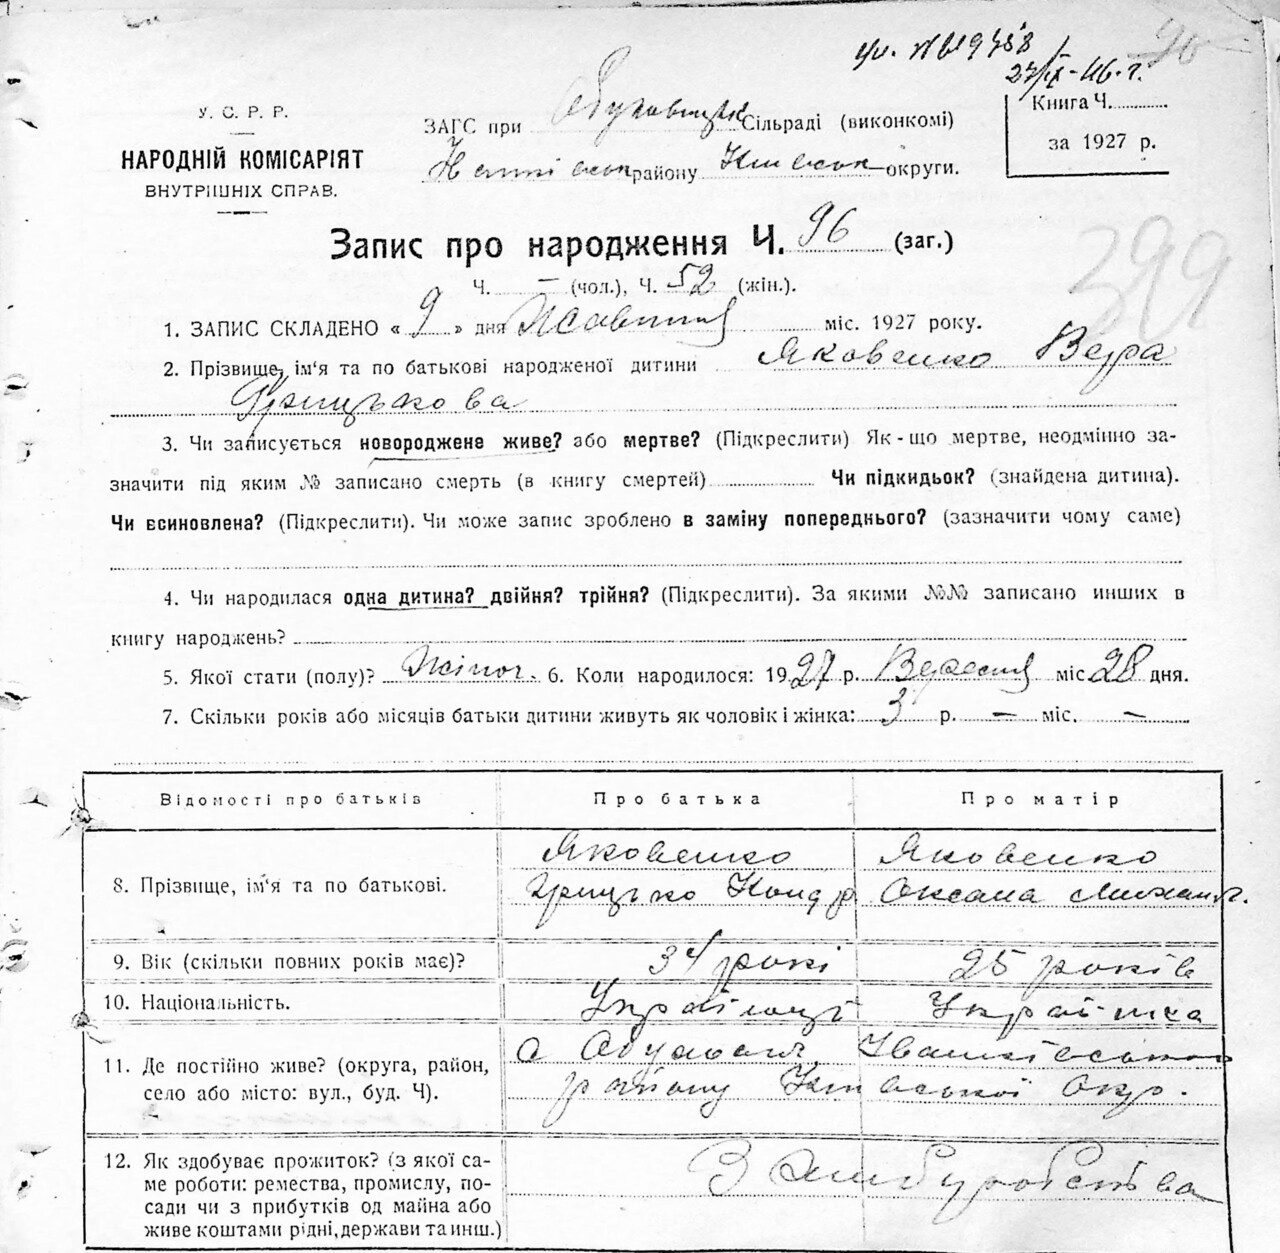 27/IX-46 г.
У. С. Р. Р.
НАРОДНІЙ КОМІСАРІЯТ
ВНУТРІШНІХ СПРАВ.
ЗАГС при Обуховицьк Сільраді (виконкомі)
району Київськ округи.
Книга Ч.
за 1927 р.
399
Запис про народження Ч. 96 (заг.)
Ч. — (чол.), Ч. 52 (жін.).
1. ЗАПИС СКЛАДЕНО « 9 » дня Жовтня міс. 1927 року.
2. Прізвище, ім'я та по батькові народженої дитини Яковенко Вера
Грицькова
3. Чи записується новороджене живе? або мертве? (Підкреслити) Як-що мертве, неодмінно за-
значити під яким № записано смерть (в книгу смертей) Чи підкидьок? (знайдена дитина).
Чи всиновлена? (Підкреслити). Чи може запис зроблено в заміну попереднього? (зазначити чому саме)
4. Чи народилася одна дитина? двійня? трійня? (Підкреслити). За якими №№ записано инших в
книгу народжень?
5. Якої стати (полу)? Жіноч. 6. Коли народилося: 1927 р. Вересня міс. 28 дня.
7. Скільки років або місяців батьки дитини живуть як чоловік і жінка: 3 р. — міс. —
Відомості про батьків Про батька Про матір
8. Прізвище, ім'я та по батькові. Яковенко Яковенко
Грицько Кондр Оксана Михайл.
9. Вік (скільки повних років має)? 34 рокі 25 років
10. Національність. Українці Українка
11. Де постійно живе? (округа, район, с Обуховичі, Іванківського
село або місто: вул., буд. Ч). району Київської Окр.
12. Як здобуває прожиток? (з якої са-
ме роботи: ремества, промислу, по-
сади чи з прибутків од майна або
живе коштами рідні, держави та инш.)
З хліборобства